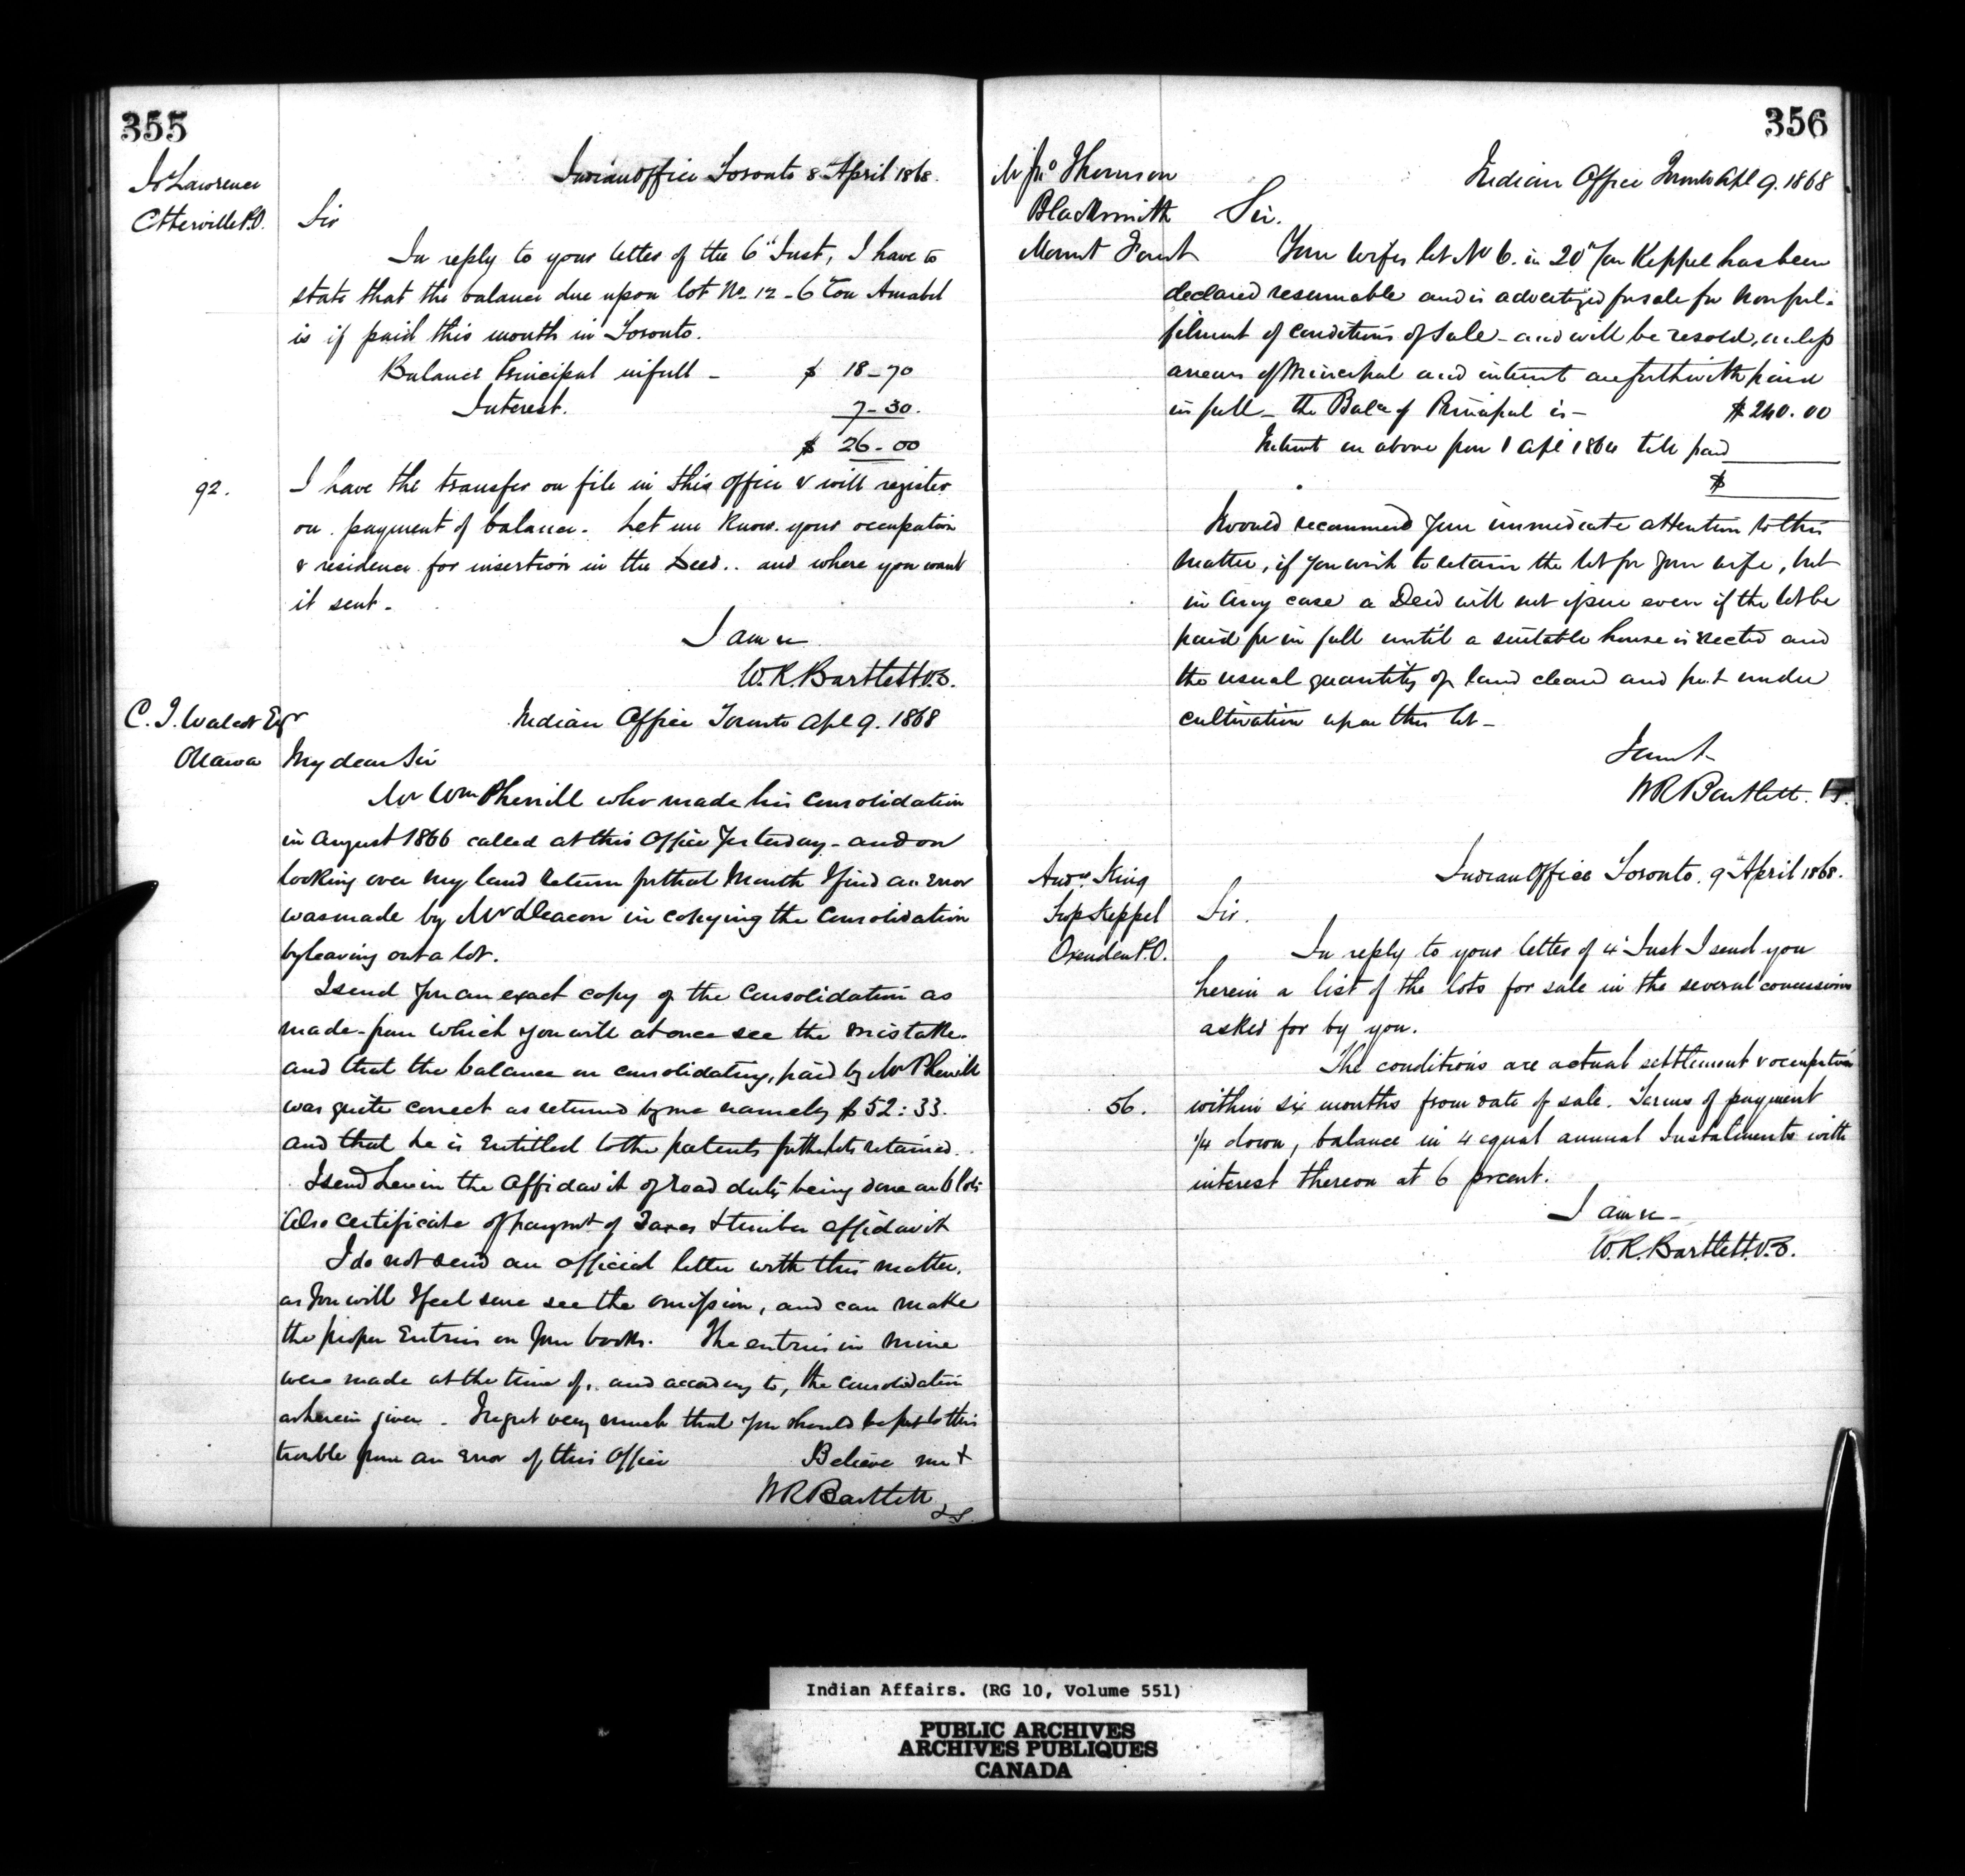 355
Js Lawrence
Otterville P.O.
Indian Office Toronto 8 April 1868.
Sir
In reply to your letter of the 6" Inst, I have to
state that the balance due upon lot No. 12 - 6 Con Amabel
is if paid this month in Toronto.
Balance Principal in full - $ 18-70
Interest. 7-30.
$ 26-00
92.
I have the transfer on file in this office & will register
on payment of balance. Let me know your occupation
& residence for insertion in the Deed.. and where you want
it sent -
I am &c
W.R. Bartlett V.S.
C. T. Walcot Esqr
Ottawa
Indian Office Toronto Apl 9. 1868
My dear Sir
Mr Wm Pherrill who made his consolidation
in August 1866 called at this Office Yesterday - and on
looking over my land return for that Month I find an error
was made by Mr Deacon in copying the Consolidation
by leaving out a lot.
I send you an exact copy of the Consolidation as
made - from which you will at once see the mistake.
and that the balance on consolidating, paid by Mr Pherrill
was quite correct as returned by me namely $52:33.
and that he is Entitled to the patents for the lots retained.
I send herein the Affidavit of road duty being done on 6 lots
Also certificate of paymt of Taxes & timber affidavit
I do not send an official letter with this matter.
as you will I feel sure see the omission, and can make
the proper Entries on your books. The entries in mine
were made at the time of, and according to, the consolidation
as herein given. I regret very much that you should be put to this
trouble from an Error of this Office
Believe me &
W R Bartlett
V.S.
356
Mr Jno Thomson
Blacksmith
Mount Forest
Indian Office Toronto Apl 9. 1868
Sir.
Your wifes lot No 6. in 20" Con Keppel has been
declared resumable and is advertized for sale for nonful-
filment of conditions of Sale - and will be resold, unless
arrears of Principal and interest are forthwith paid
in full - the Balce of Principal is - $240.00
Interest on above from 1 Apl 1864 till paid
$
I would recommend your immediate attention to this
matter, if you wish to retain the lot for your wife, but
in any case a Deed will not issue even if the lot be
paid for in full until a suitable house is erected and
the usual quantity of land cleared and put under
cultivation upon this lot -
W R Bartlett. V.S.
Andw King
Twp Keppel
Oxenden P.O.
Indian Office Toronto. 9" April 1868.
Sir.
In reply to your letter of 4" Inst I send you
herein a list of the lots for sale in the several concessions
asked for by you.
The conditions are actual settlement & occupation
56.
within six months from date of sale. Terms of payment
1/4 down, balance in 4 equal annual Instalments with
interest thereon at 6 prcent.
I am &c -
W. R. Bartlett. V.S.
Indian Affairs. (RG 10, Volume 551)
PUBLIC ARCHIVES
ARCHIVES PUBLIQUES
CANADA